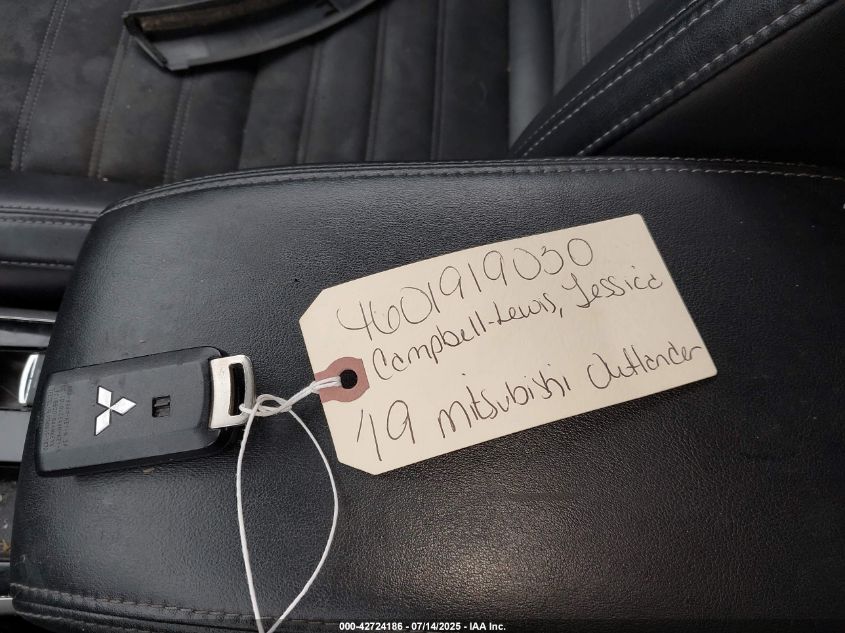 4601919030
Campbell-Lewis, Jessica
'19 Mitsubishi Outlander
000-42724186 - 07/14/2025 - IAA Inc.